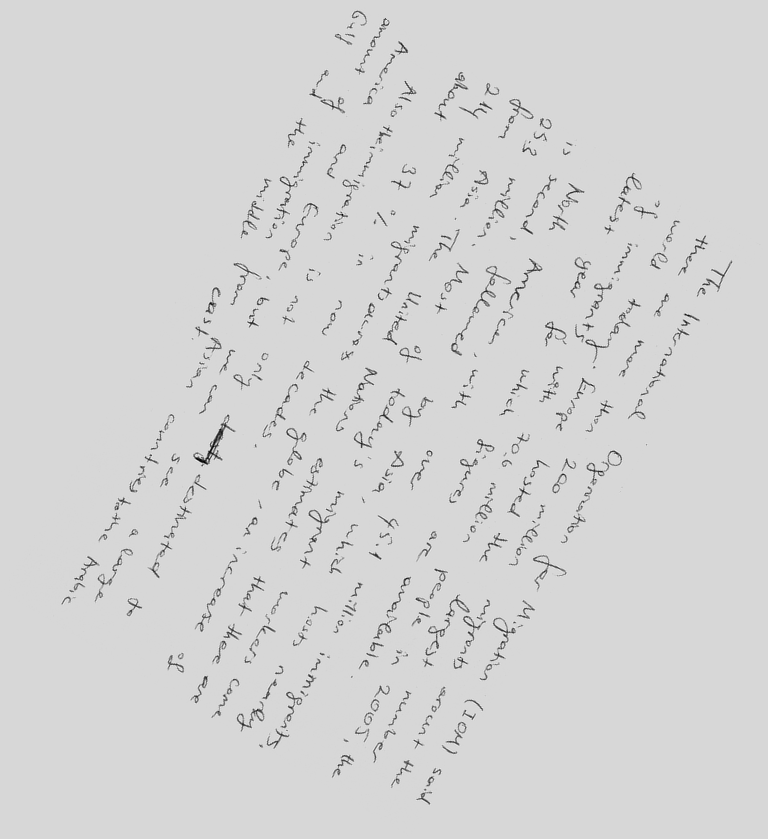 The International Organization for Migration (IOM) said
there are more than 200 million migrants around the
world today. Europe hosted the largest number
of immigrants, with 70.6 million people in 2005, the
latest year for which figures are available.
North America, with over 45.1 million immigrants,
is second, followed by Asia, which hosts nearly
25.3 million. Most of today's migrant workers come
from Asia. The United Nations estimates that there are
214 million migrants across the globe, an increase of
about 37% in decades.
Also the immigration is not only destinated to
America and Europe, but we can see a large
amount of immigration from east Asian countries to the Arabic
Gulf and the middle